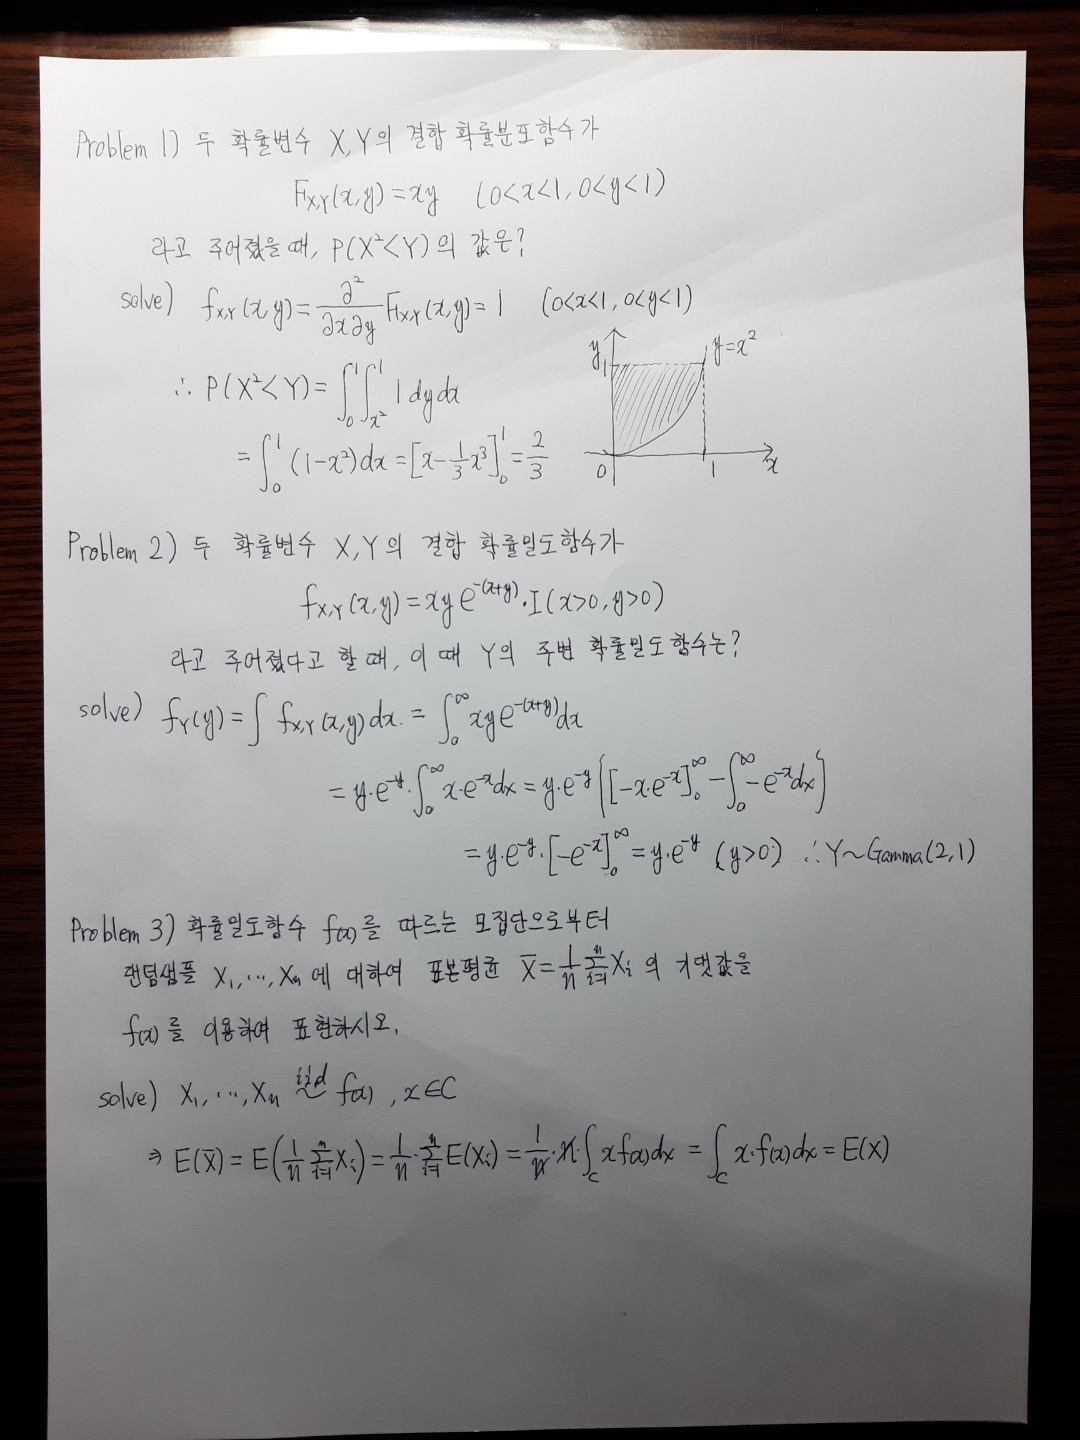 Problem 1) 두 확률변수 X,Y의 결합 확률분포함수가
F_{X,Y}(x,y)=xy (0<x<1, 0<y<1)
라고 주어졌을 때, P(X²<Y)의 값은?
solve) f_{X,Y}(x,y)=∂²/∂x∂y F_{X,Y}(x,y)=1 (0<x<1, 0<y<1)
∴ P(X²<Y)=∫₀¹∫_{x²}¹ 1dydx
=∫₀¹(1-x²)dx=[x-1/3x³]₀¹=2/3
y 1 y=x²
0 1 x
Problem 2) 두 확률변수 X,Y의 결합 확률밀도함수가
f_{X,Y}(x,y)=xye^{-(x+y)}·I(x>0,y>0)
라고 주어졌다고 할 때, 이 때 Y의 주변 확률밀도함수는?
solve) f_Y(y)=∫f_{X,Y}(x,y)dx.=∫₀^∞ xye^{-(x+y)}dx
=y·e^{-y}·∫₀^∞ x·e^{-x}dx=y·e^{-y}{[-x·e^{-x}]₀^∞-∫₀^∞-e^{-x}dx}
=y·e^{-y}·[-e^{-x}]₀^∞=y·e^{-y} (y>0) ∴Y~Gamma(2,1)
Problem 3) 확률밀도함수 f(x)를 따르는 모집단으로부터
랜덤샘플 X₁,···,Xₙ에 대하여 표본평균 X̄=1/n Σ_{i=1}^{n}X_i의 기댓값을
f(x)를 이용하여 표현하시오.
solve) X₁,···,Xₙ iid~ f(x), x∈C
⇒ E(X̄)=E(1/n Σ_{i=1}^{n}X_i)=1/n·Σ_{i=1}^{n}E(X_i)=1/n·n·∫_C xf(x)dx=∫_C x·f(x)dx=E(X)